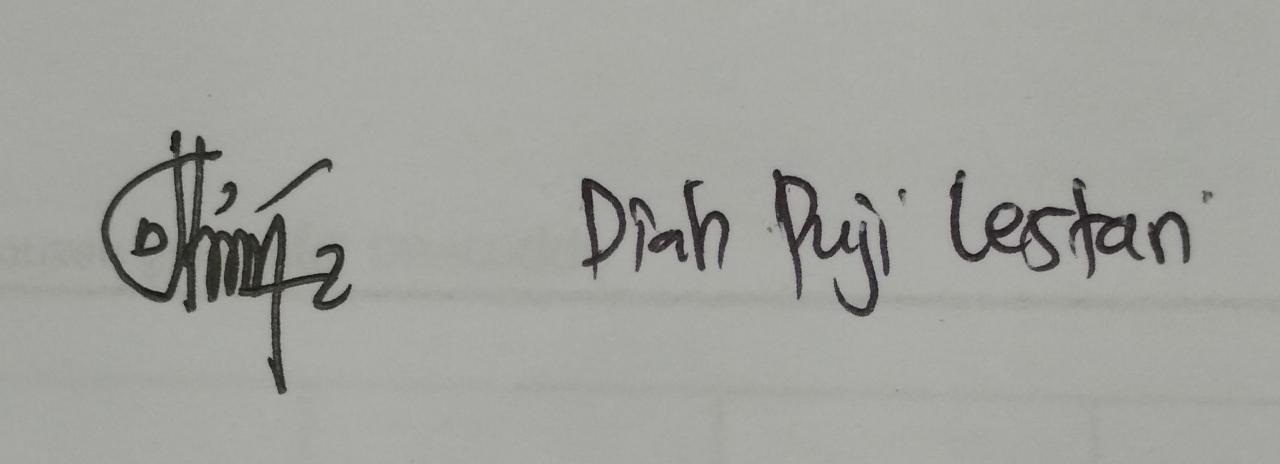 Diah Puji Lestari